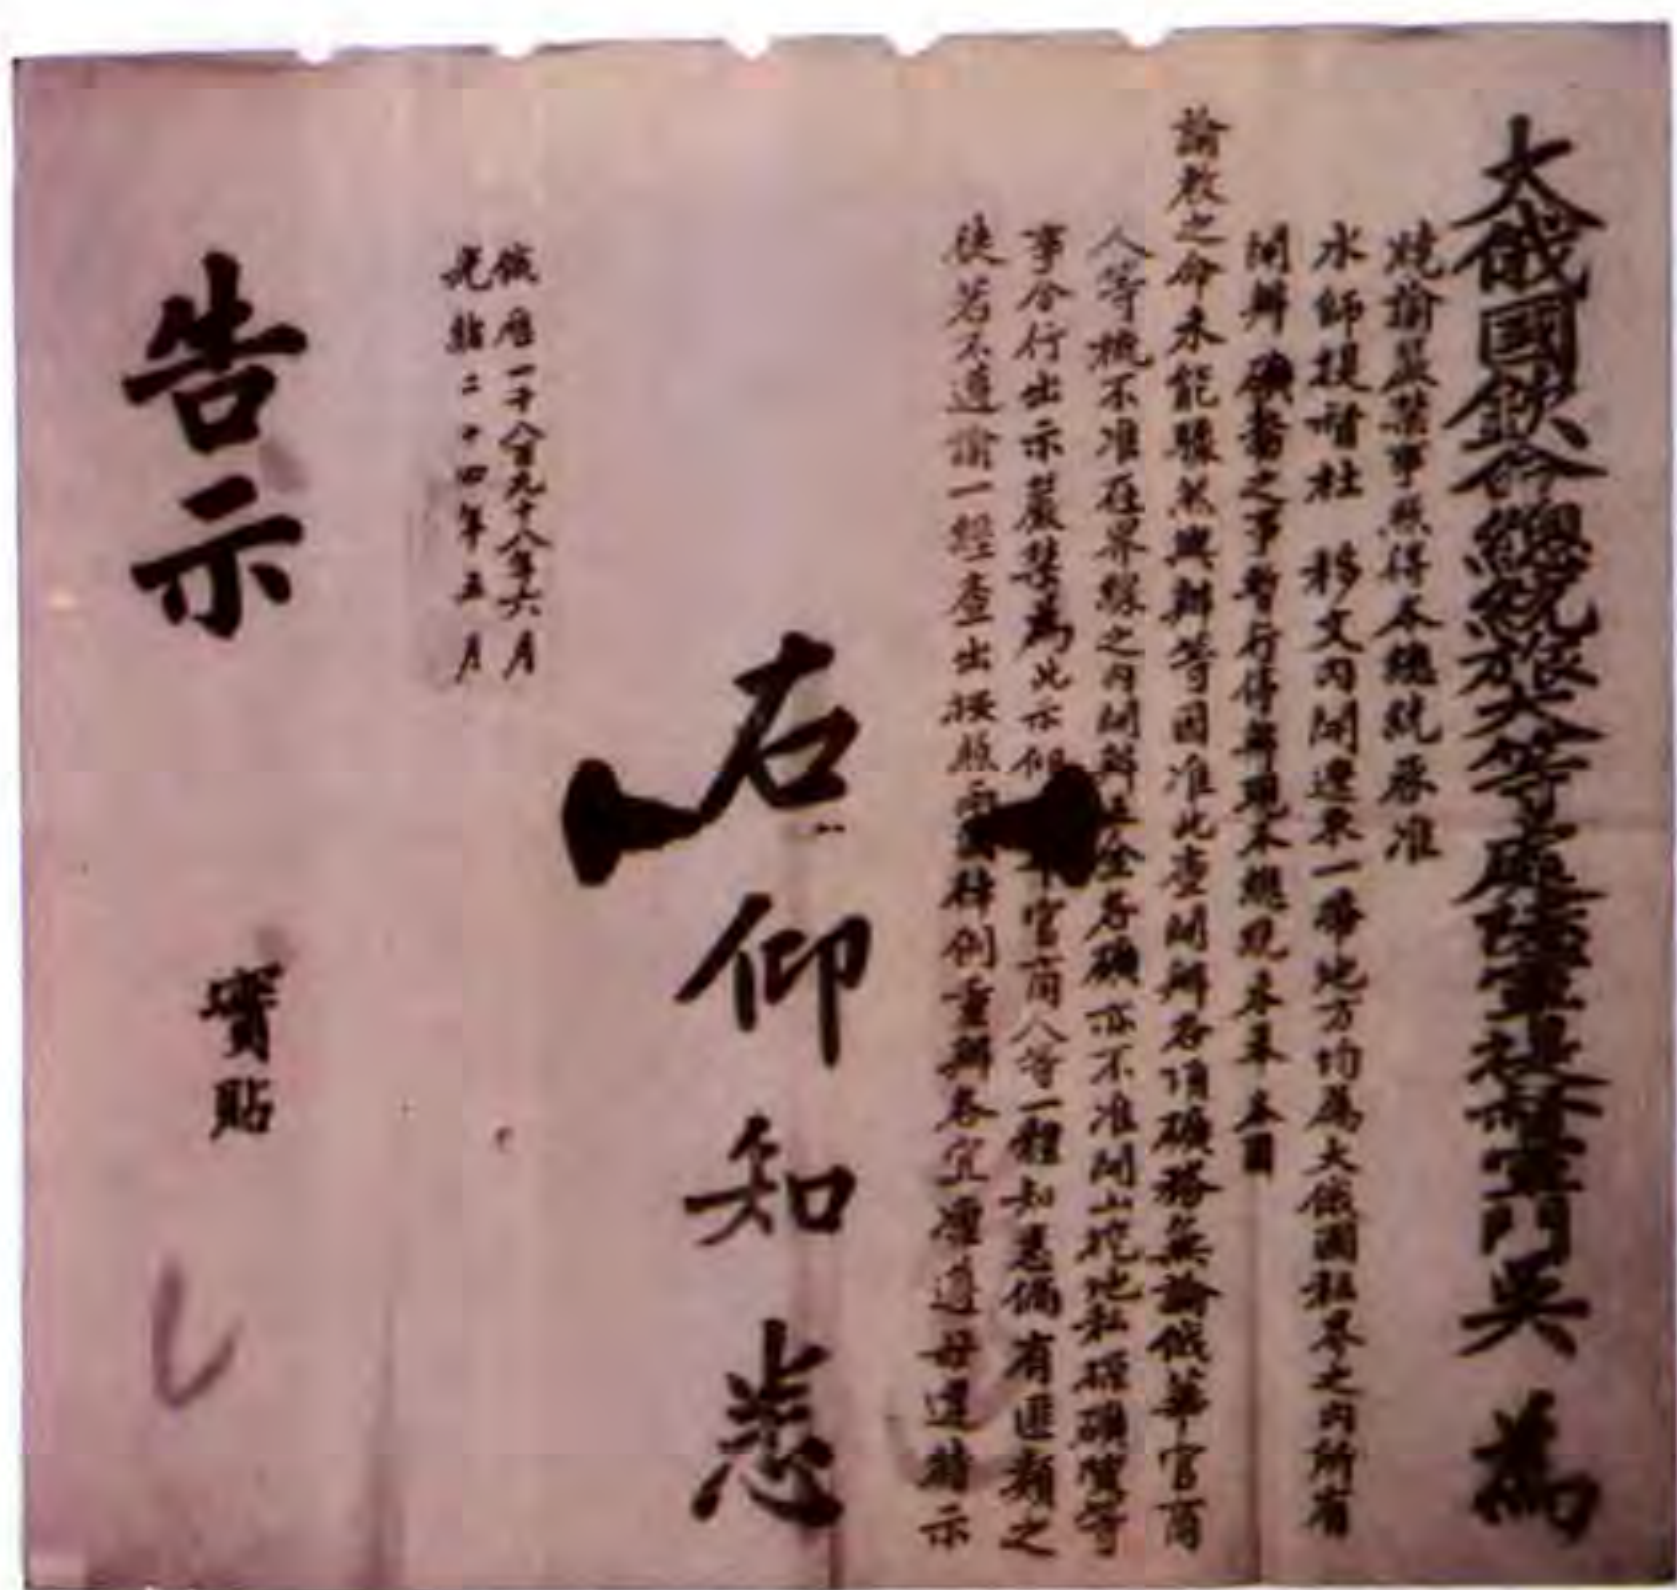 大俄國欽命總統旅大等處陸軍提督軍門吳 為
曉諭嚴禁事照得本總統奉准
水師提督杜 移文內開遼東一帶地方均屬大俄國租界之內所有
開辦礦務之事暫行停辦現本總統未奉本國
諭教之命未能驟然興辦等因准此查開辦各項礦務無論俄華官商
人等概不准在界線之內開辦五金各礦亦不准開山挖地私採礦質等
事合行出示嚴禁為此示仰 官商人等一體知悉倘有匪類之
徒若不遵諭一經查出按照 律例重辦各宜凜遵毋違特示
右仰知悉
俄曆一千八百九十八年六月
光緒二十四年五月
告示
實貼